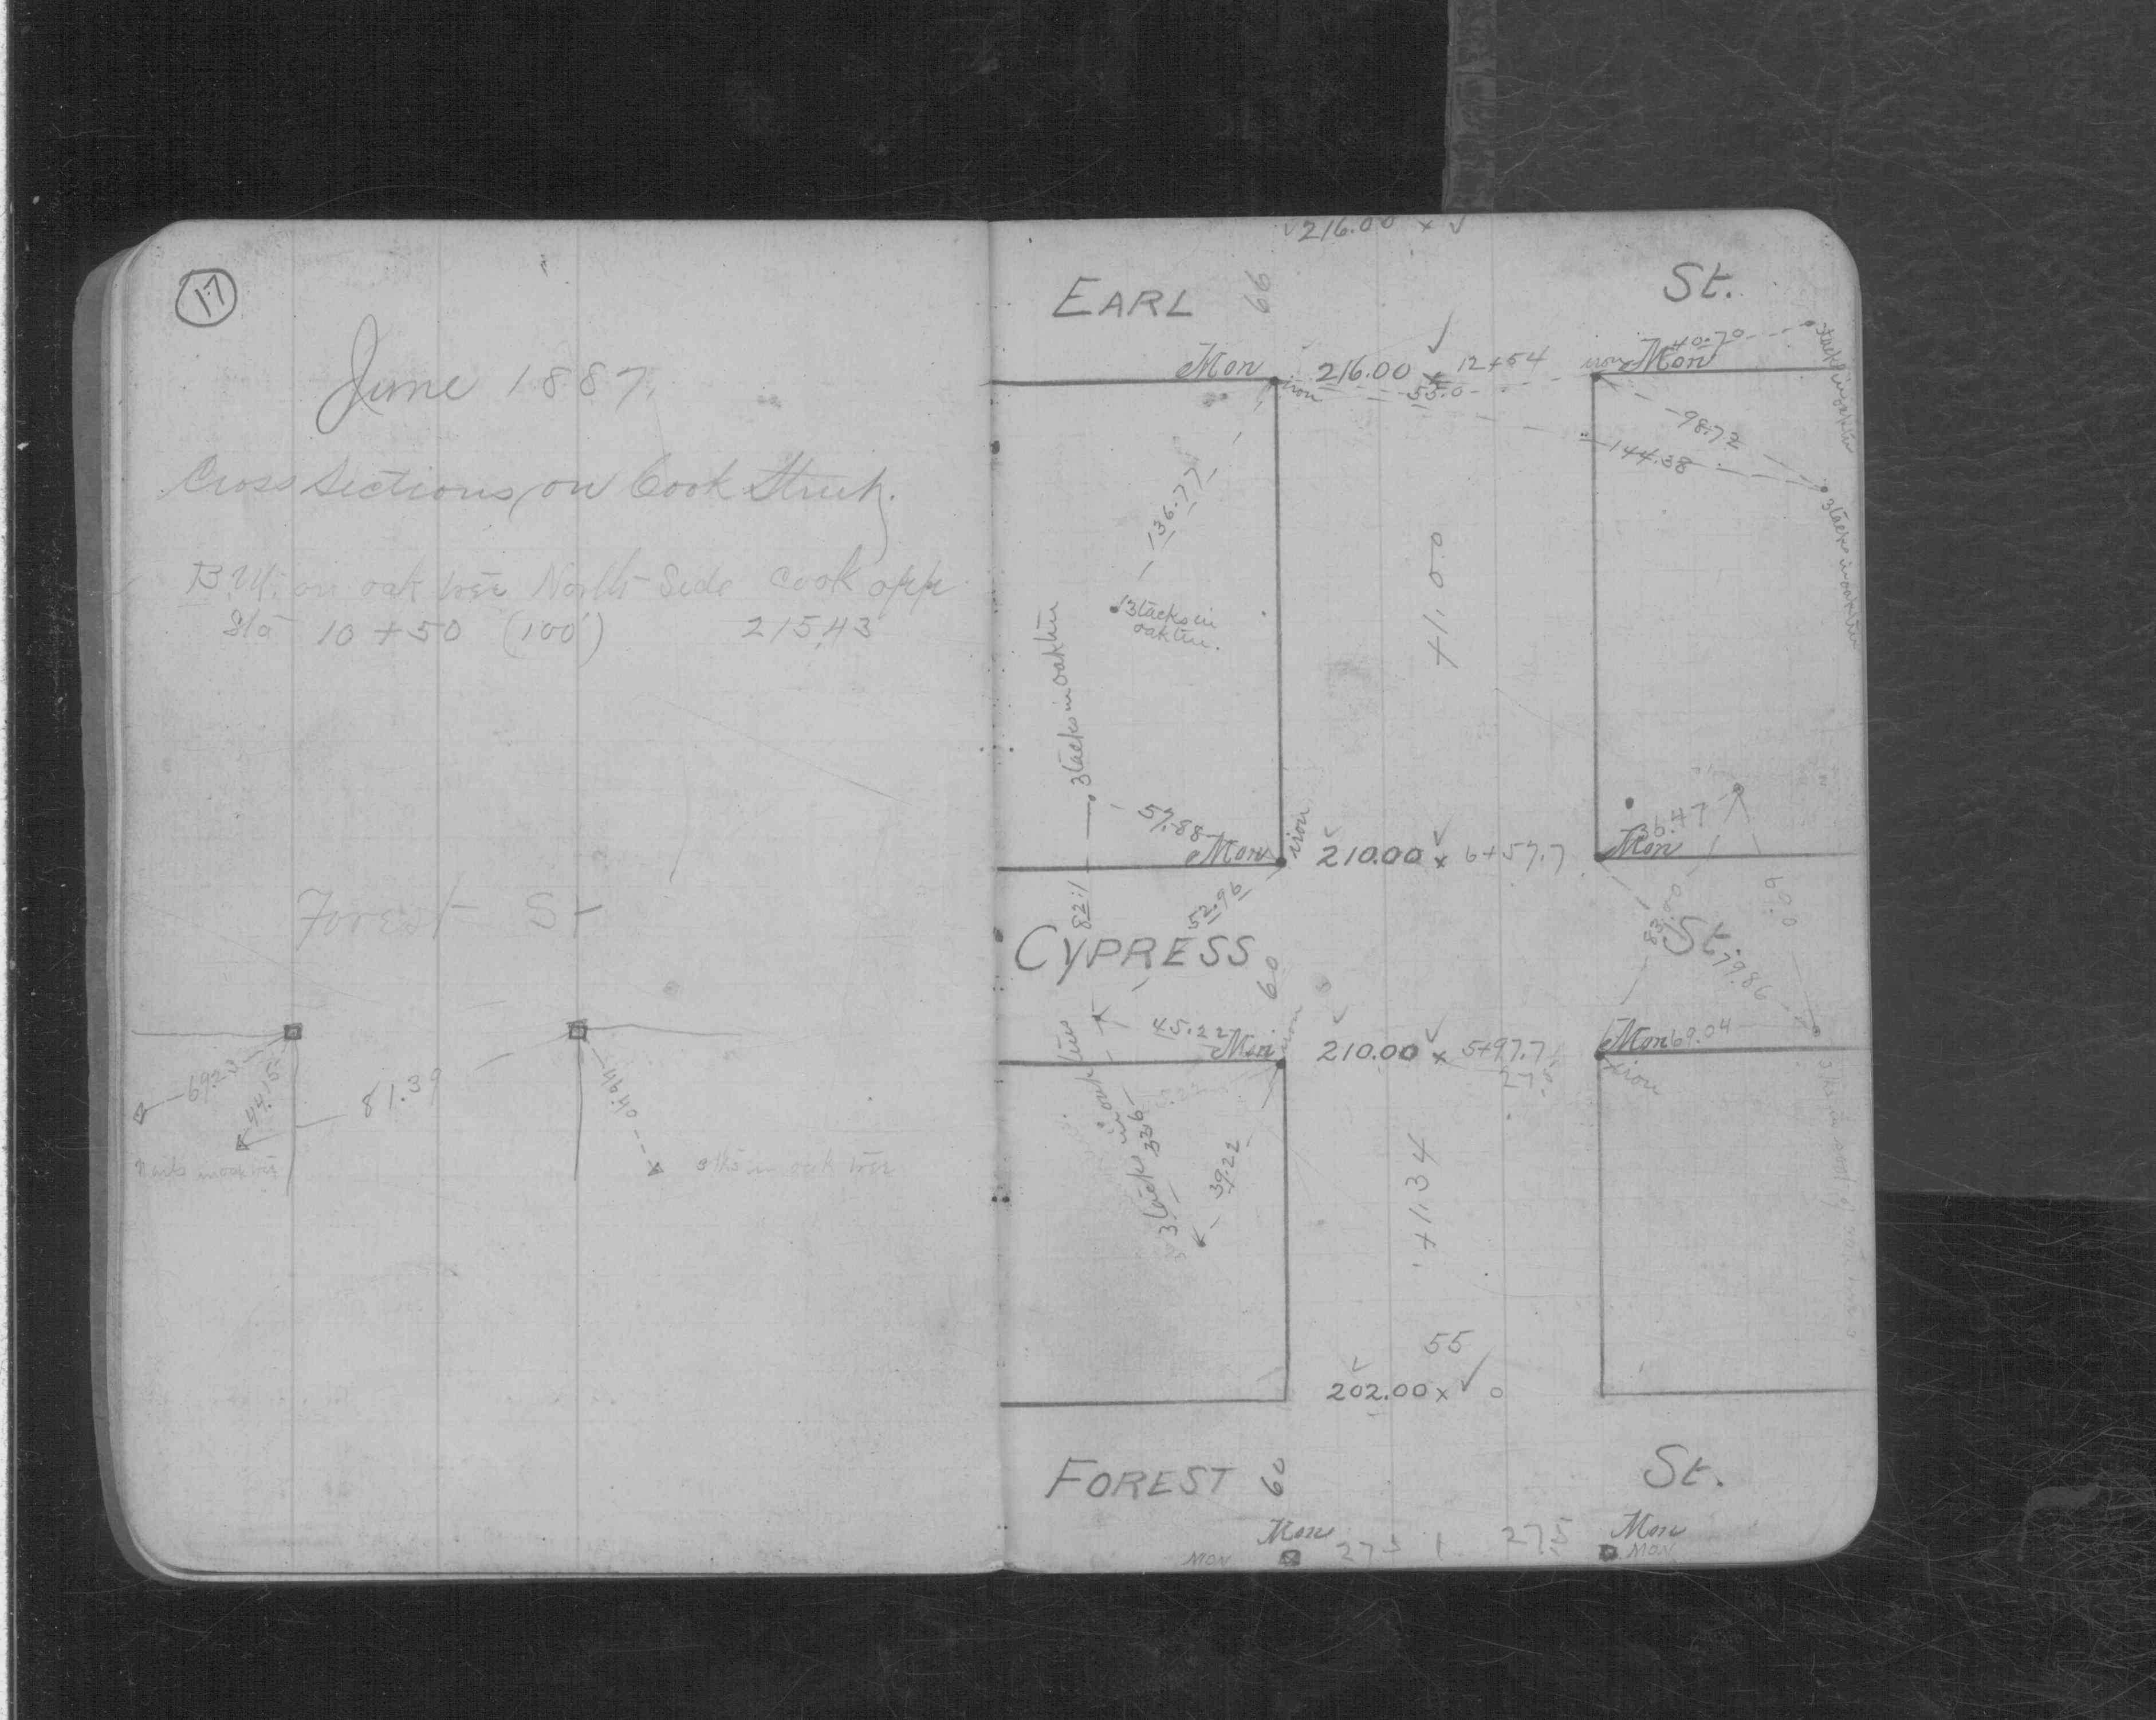 17
June 1887.
Cross Sections on Cook Street.
B.M. on oak tree North Side Cook opp
Sta 10 + 50 (100') 215.43
Forest St
69.2
44.15
81.39
Nails in oak tree
in oak tree
216.00 x
EARL 66 St.
Mon 216.00 x 12+54 Mon 40.70
iron 55.0 iron
3 tacks in oak tree
98.72
144.38
3 tacks in oak tree
136.77
3 tacks in
oak tree.
+1.00
3 tacks in oak tree
57.88
Mon iron 210.00 x 6+57.7 Mon
36.47
82.1
52.96
CYPRESS 60 St.
83.00
60.9
79.86
45.22 Mon iron 210.00 x 5+97.7 Mon 69.04
iron
3 tacks in oak tree
33.6
39.22
+1.34
55
202.00 x 0
FOREST 60 St.
Mon 27.5 27.5 Mon
MON MON